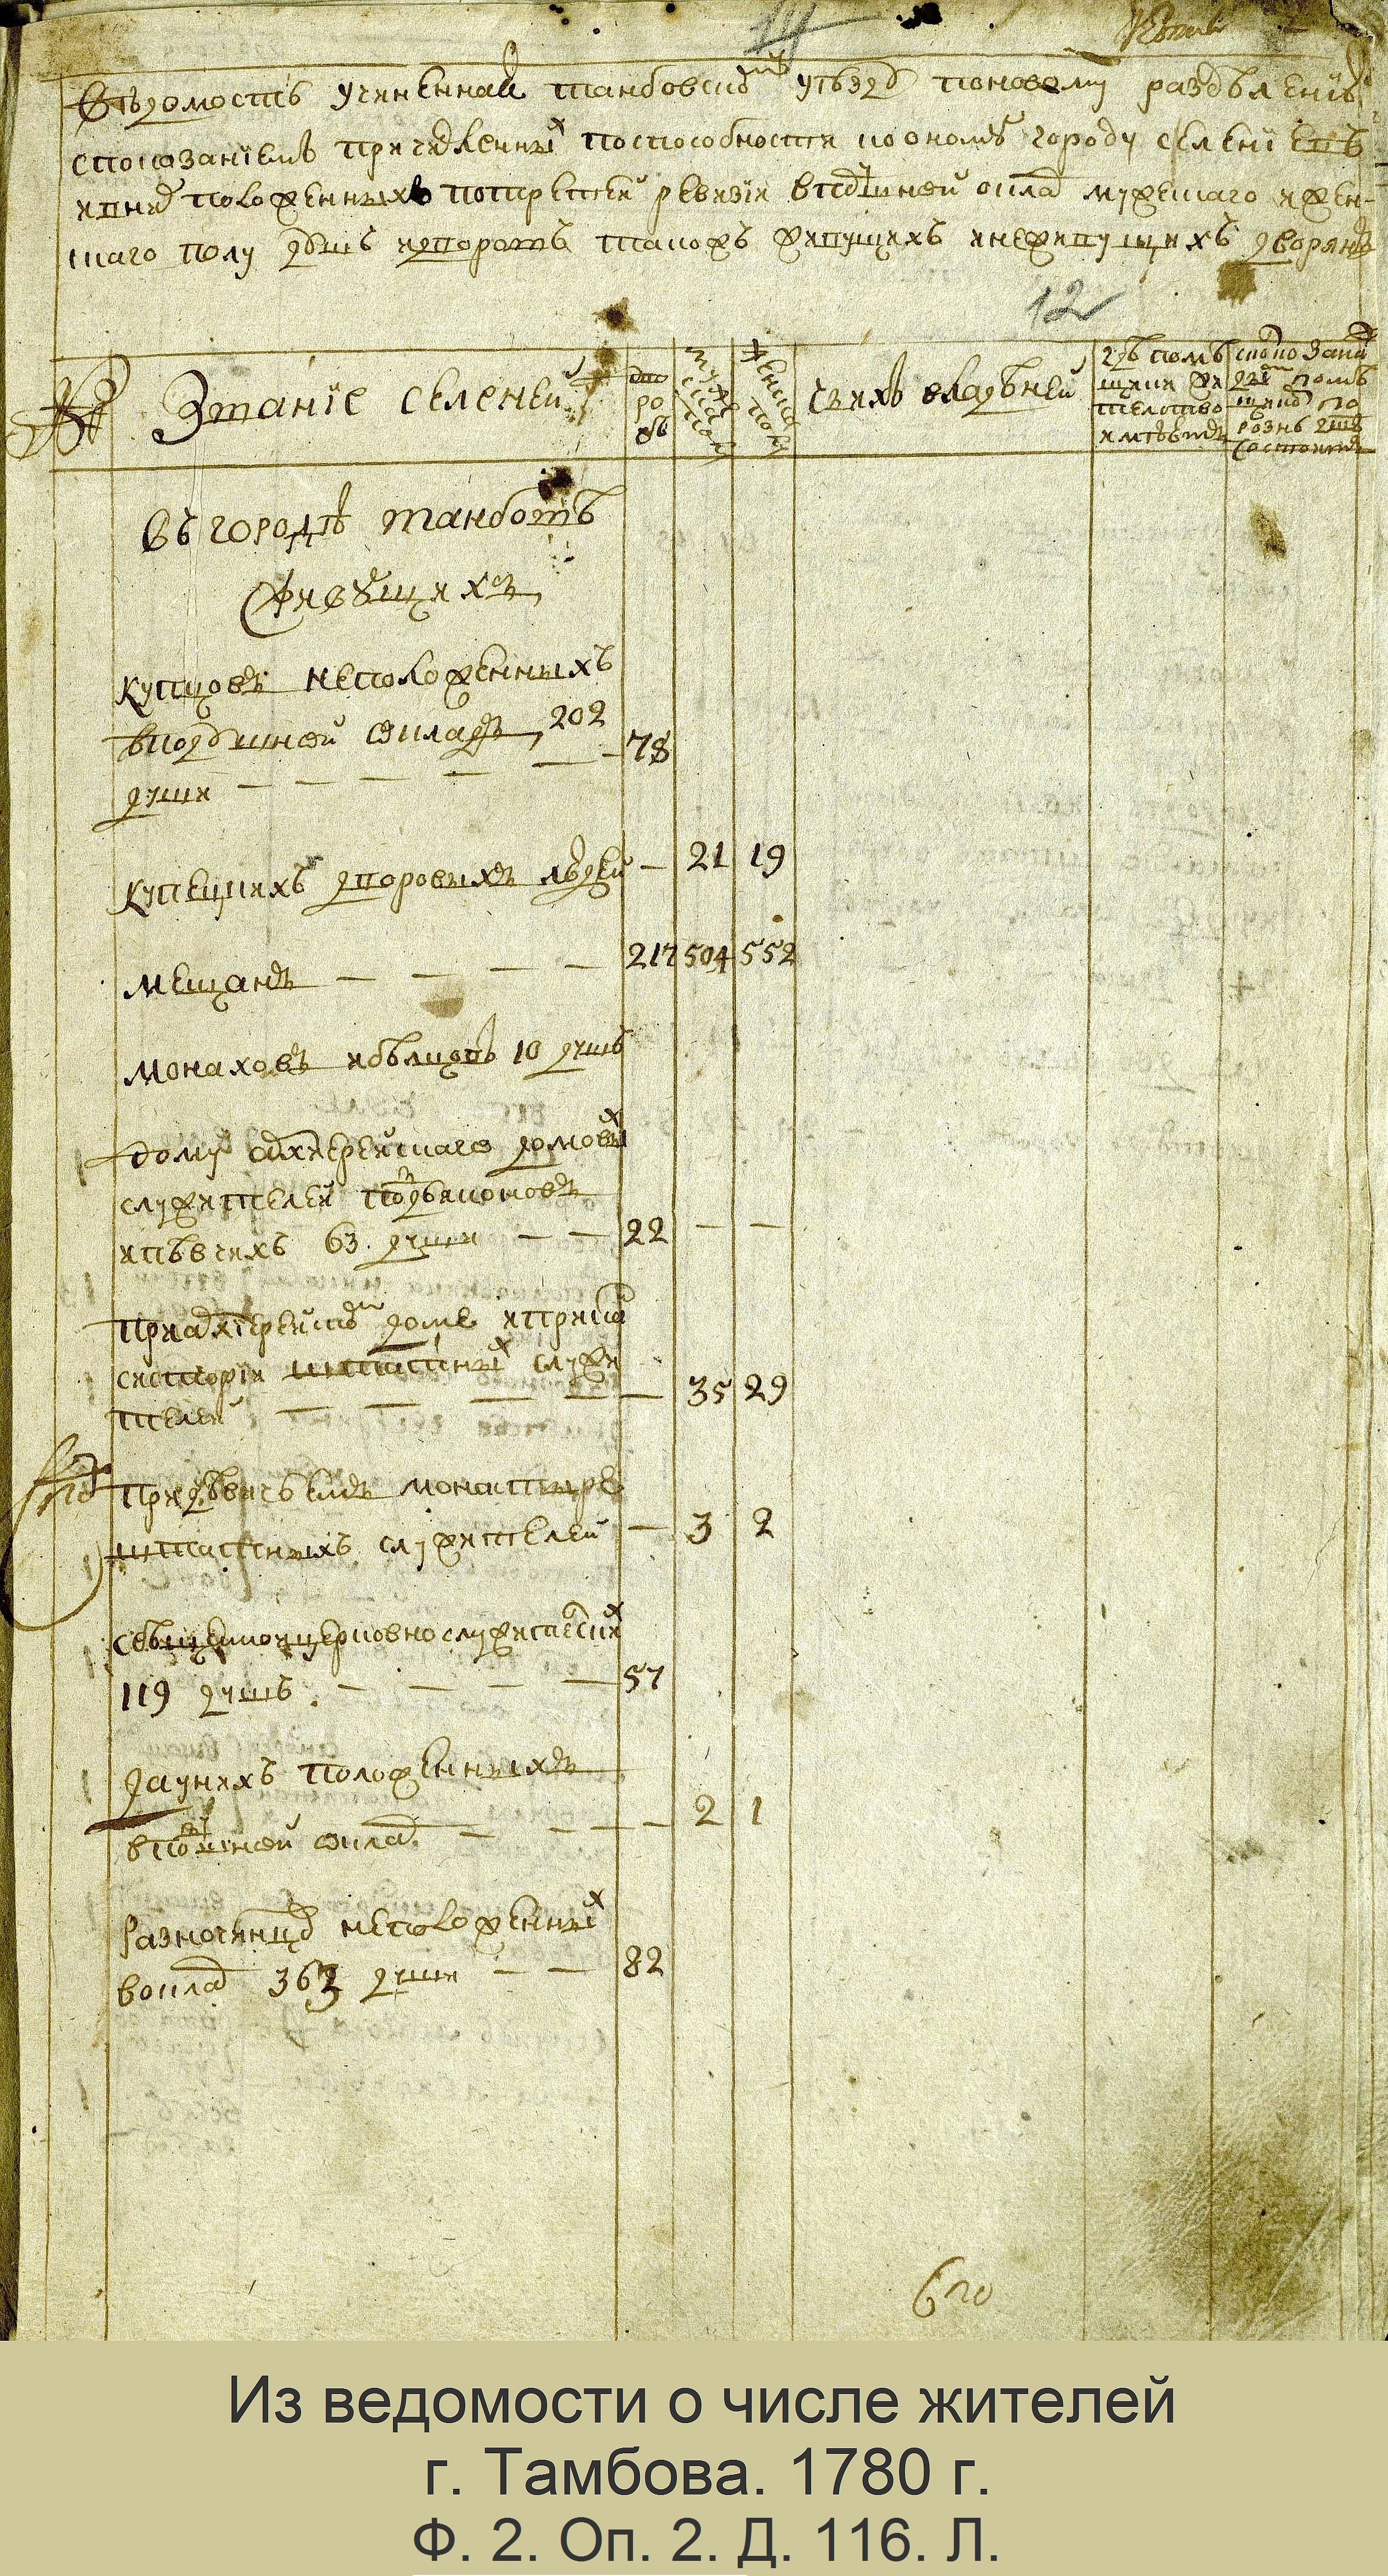 Вѣдомость учиненная танбовскому уѣзду поновому раздѣлению
спозаниемъ причисленных поспособности коономъ городу селениевъ
инихъ положенныхъ потретьей ревизии вподушной оклад мужескаго ижен-
скаго полу душъ идворовъ также живущихъ инеживущихъ дворянъ
12
Звание селеней
дворовъ
мужеска полу
женска полу
Чьихъ владѣней
Въ городѣ танбовѣ
Живущихъ
купцовъ неположенныхъ
вподушной окладъ 202
души — — — — — 78
Купецкихъ дворовыхъ людей — 21 19
мещанъ — — — — 217 504 552
монаховъ ибѣлцовъ 10 душъ
дому архиерейскаго домовых
служителей подьяконовъ
ипѣвчихъ 63 души — — 22 — —
приархиерейском доме иприкон
систории штатных служи
телей — — — — — 35 29
придѣвичьемъ монастыре
штатныхъ служителей — 3 2
Священноицерковнослужительских
119 душъ. — — — — 57
заунихъ положенныхъ
вподушной оклад. — — — — 2 1
Разночинцовъ неположенных
воклад 363 души — — 82
Из ведомости о числе жителей
г. Тамбова. 1780 г.
Ф. 2. Оп. 2. Д. 116. Л.